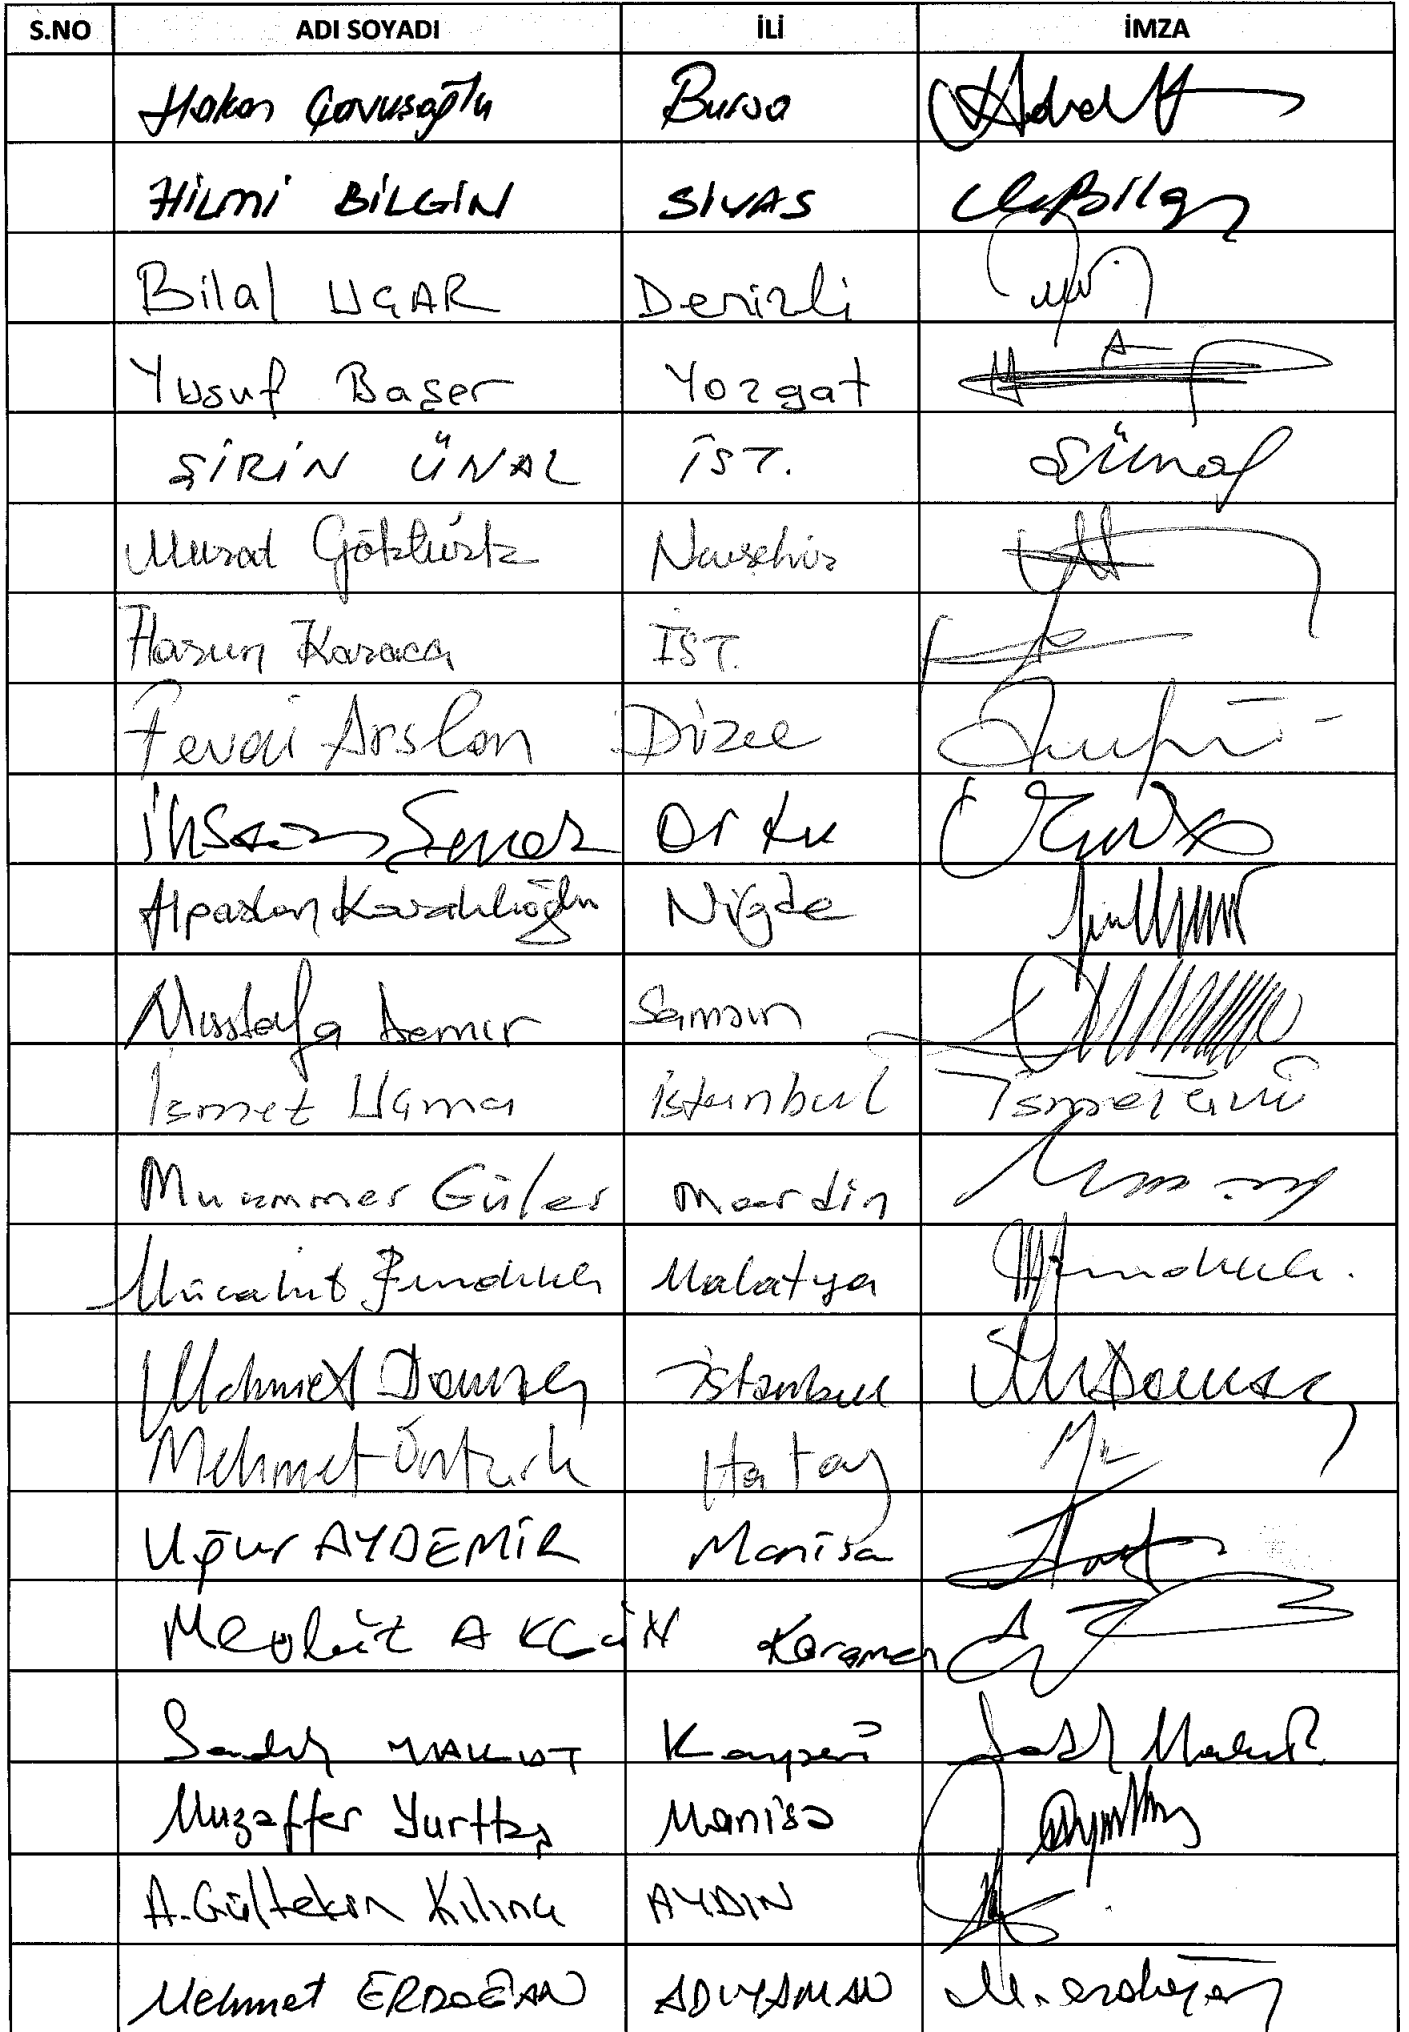 S.NO ADI SOYADI İLİ İMZA
Hakan Çavuşoğlu Bursa
HİLMİ BİLGİN SİVAS
Bilal UÇAR Denizli
Yusuf Başer Yozgat
ŞİRİN ÜNAL İST. SÜnal
Murat Göktürk Nevşehir
Harun Karaca İST.
Fevai Arslan Düzce
İhsan Şener Ordu
Alpaslan Kavaklıoğlu Niğde
Mustafa Demir Samsun
İsmet Uçma istanbul
Muammer Güler Mardin
Mücahit Fındıklı Malatya
Mehmet Domaç istanbul
Mehmet Öntürk Hatay
Uğur AYDEMİR Manisa
Mevlüt AKGÜN Karaman
Sadık YAKUT Kayseri
Muzaffer Yurttaş Manisa
A.Gültekin Kılınç AYDIN
Mehmet ERDOĞAN ADIYAMAN M.erdoğan